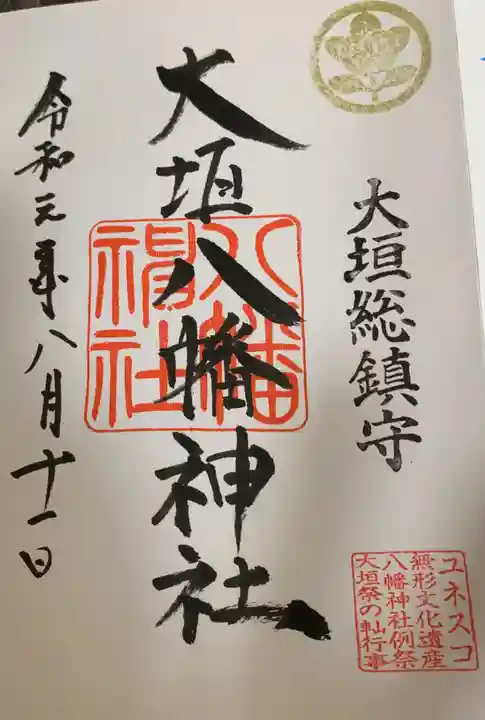 大垣総鎮守
ユネスコ
無形文化遺産
八幡神社例祭
大垣祭の軕行事
大垣八幡神社
八幡
神社
令和元年八月十一日